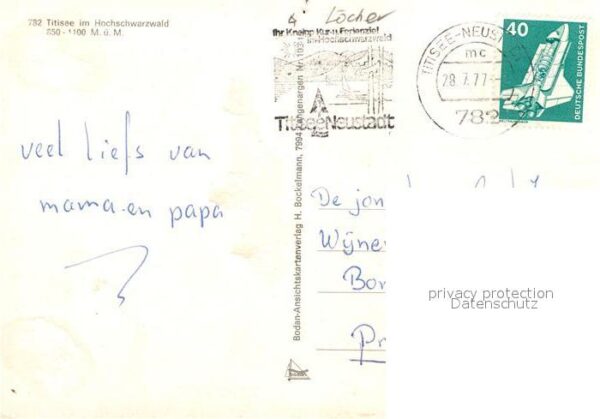 782 Titisee im Hochschwarzwald
850 - 1100 M. ü. M.
4 Löcher
Ihr Kneipp Kur- u. Ferienziel
im Hochschwarzwald
Titisee Neustadt
TITISEE-NEUST
mc
28.7.77
782
40
DEUTSCHE BUNDESPOST
veel liefs van
mama en papa
Bodan-Ansichtskartenverlag H. Bockelmann, 7994 Langenargen
De jon
Wijne
Bor
privacy protection
Datenschutz